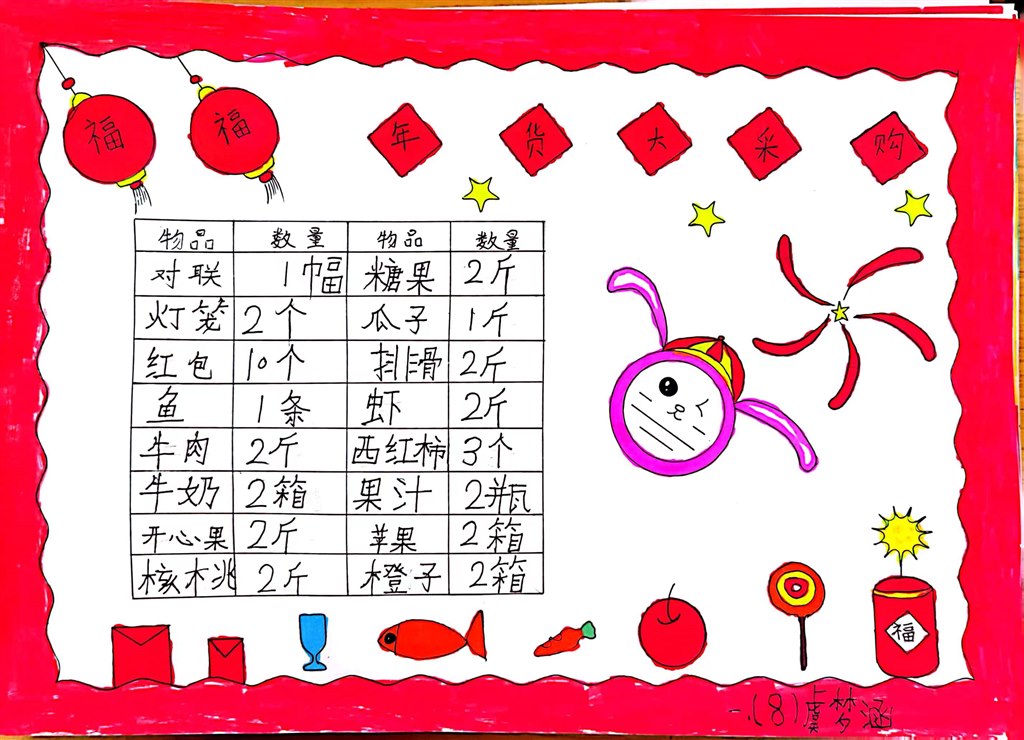 福 福
年 货 大 采 购
物品 数量 物品 数量
对联 1幅 糖果 2斤
灯笼 2个 瓜子 1斤
红包 10个 排骨 2斤
鱼 1条 虾 2斤
牛肉 2斤 西红柿 3个
牛奶 2箱 果汁 2瓶
开心果 2斤 苹果 2箱
核桃 2斤 橙子 2箱
福
一.(8)虞梦涵